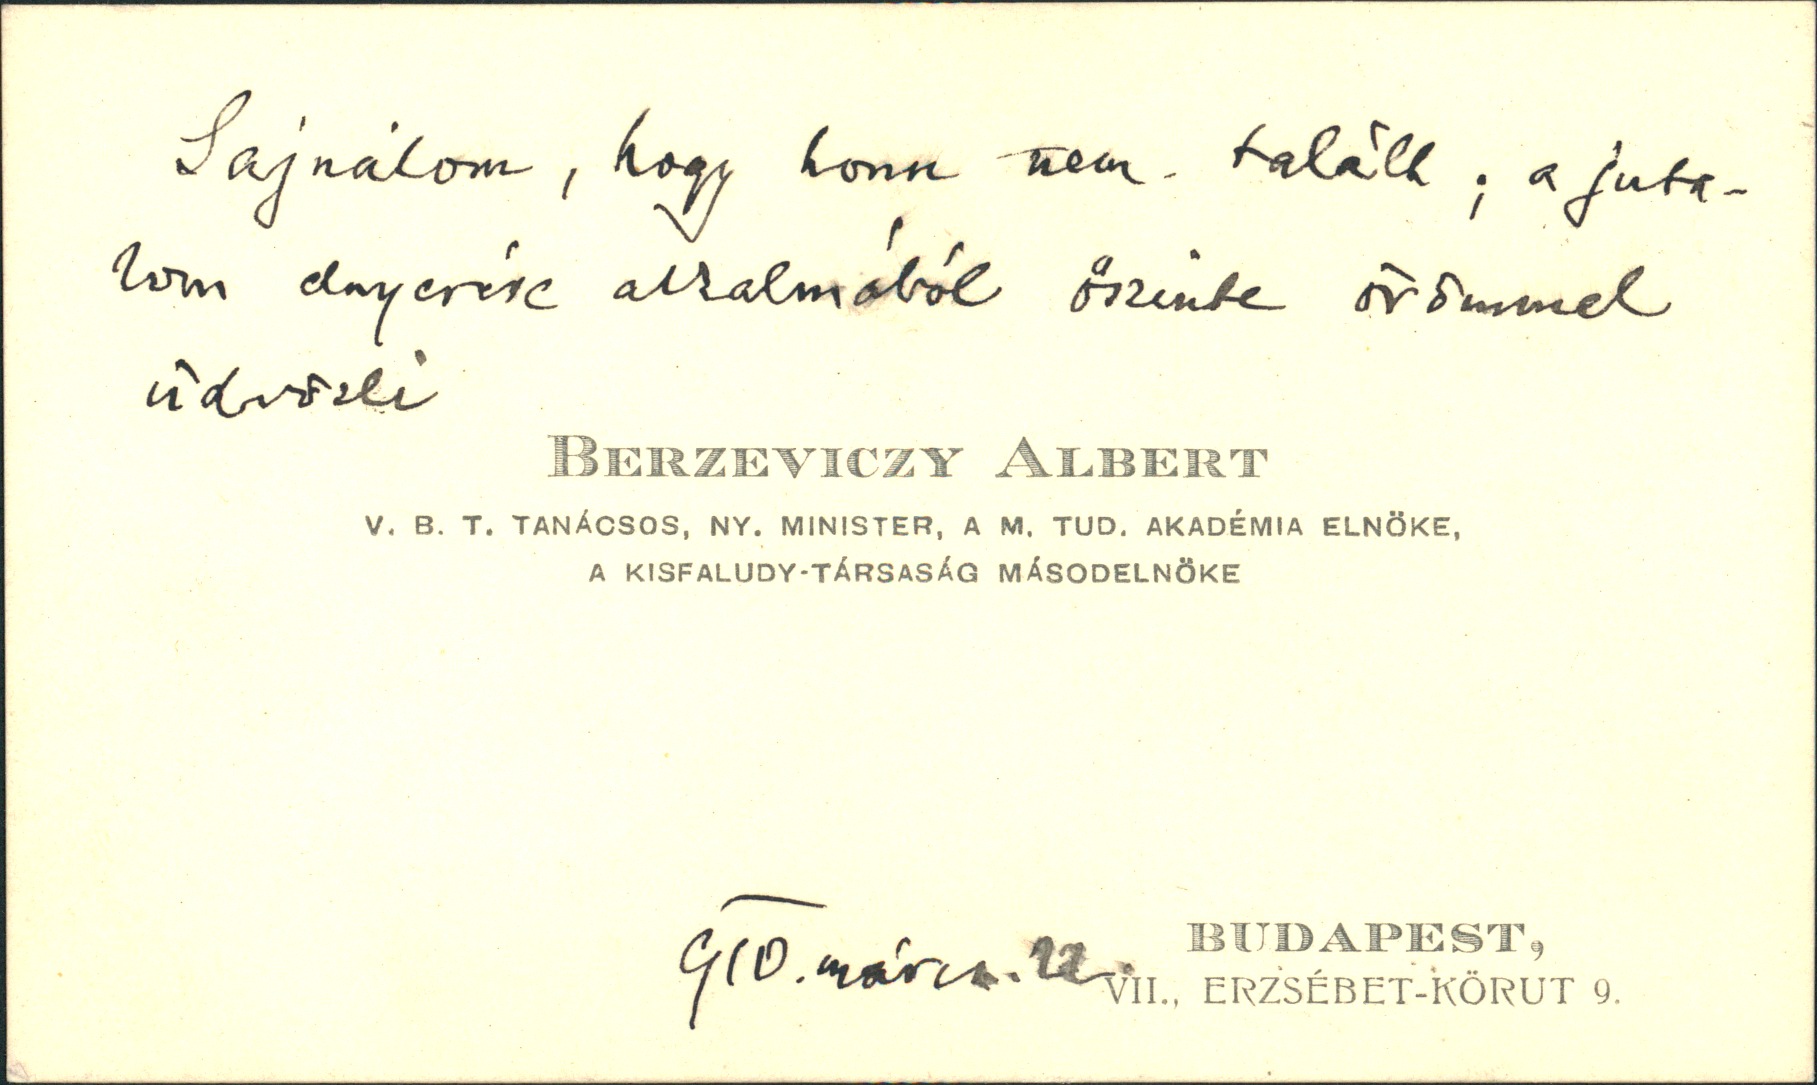 Sajnálom, hogy honn nem talált; a juta-
lom elnyerése alkalmából őszinte örömmel
üdvözli
BERZEVICZY ALBERT
V. B. T. TANÁCSOS, NY. MINISTER, A M. TUD. AKADÉMIA ELNÖKE,
A KISFALUDY-TÁRSASÁG MÁSODELNÖKE
910. márcz. 22.
BUDAPEST,
VII., ERZSÉBET-KÖRUT 9.